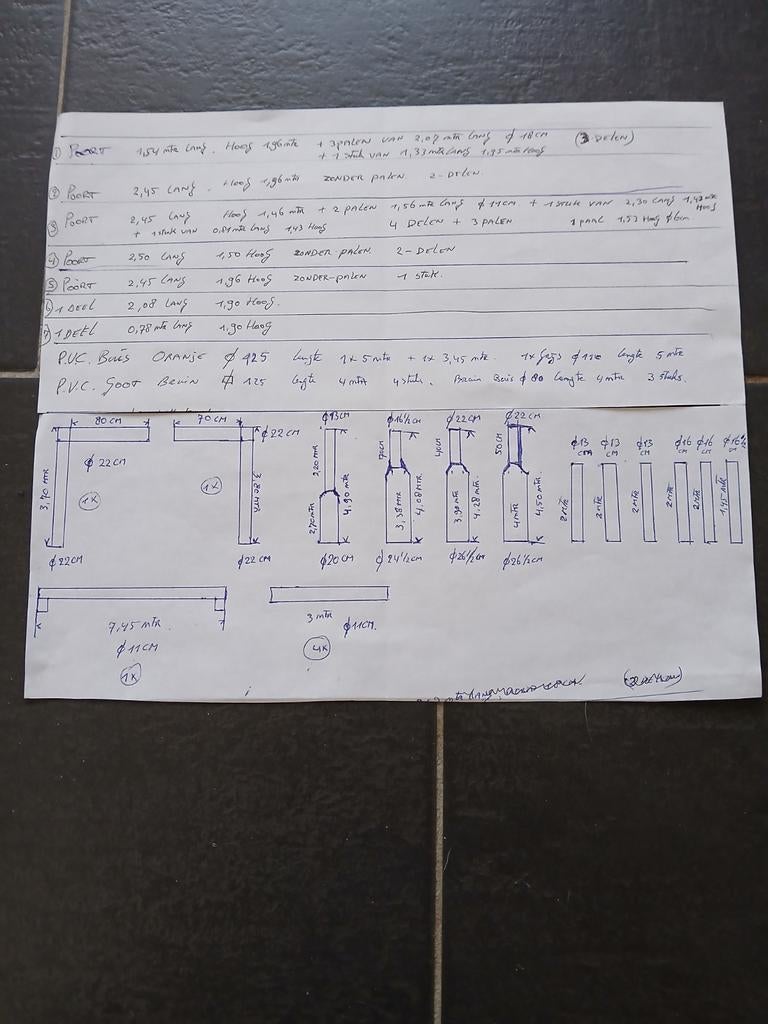 ① POORT 1,54 mtr LANG. HOOG 1,96 mtr + 3 PALEN VAN 2,07 mtr LANG ϕ 18 CM (3 DELEN)
+ 1 stuk VAN 1,33 mtr LANG 1,95 mtr HOOG
② POORT 2,45 LANG. HOOG 1,96 mtr ZONDER PALEN 2-DELEN.
③ POORT 2,45 LANG HOOG 1,46 mtr + 2 PALEN 1,56 mtr LANG ϕ 11 CM. + 1 STUK VAN 2,30 LANG 1,42 mtr HOOG
+ 1 stuk VAN 0,81 mtr LANG 1,43 HOOG 4 DELEN + 3 PALEN 1 PAAL 1,53 HOOG ϕ 6 cm.
④ POORT 2,50 LANG 1,50 HOOG ZONDER PALEN. 2-DELEN
⑤ POORT 2,45 LANG 1,96 HOOG ZONDER-PALEN 1 stuk.
⑥ 1 DEEL 2,08 LANG 1,90 HOOG.
⑦ 1 DEEL 0,78 mtr LANG 1,90 HOOG
P.V.C. BUIS ORANJE ϕ 125 lengte 1x 5 mtr + 1x 3,45 mtr. 1x ϕ 110 lengte 5 mtr
P.V.C. GOOT BRUIN 125 lengte 4 mtr 4 stuks. Bruin Buis ϕ 80 lengte 4 mtr 3 stuks.
80 CM 70 CM ϕ 22 CM ϕ 13 CM ϕ 16 1/2 CM ϕ 22 CM ϕ 22 CM
ϕ 13 CM ϕ 13 CM ϕ 13 CM ϕ 16 CM ϕ 16 CM
ϕ 22 CM
1x 1x
3,70 MTR 3,80 MTR 2,20 MTR 2,70 MTR 4,90 MTR. 70 CM 3,38 MTR 4,08 MTR. 40 CM 3,90 MTR 4,28 MTR. 50 CM 4 MTR 4,50 MTR.
2 MTR 2 MTR 2 MTR 2 MTR 2 MTR 1,45 MTR
ϕ 22 CM ϕ 22 CM ϕ 20 CM ϕ 24 1/2 CM ϕ 26 1/2 CM ϕ 26 1/2 CM
7,45 MTR. 3 MTR ϕ 11 CM.
ϕ 11 CM
1x 4x